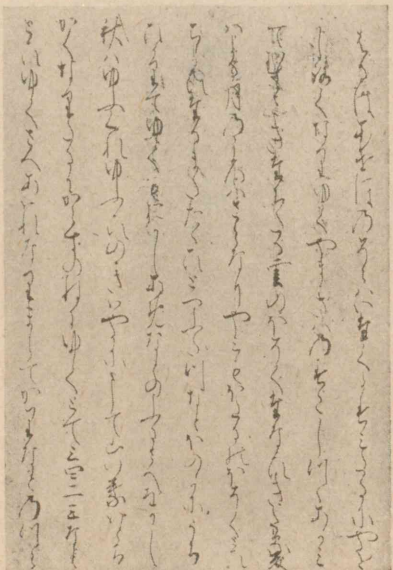 はるはあけほのそらはいたくかすみたるにやう
やうしろくなりゆくやまきはのすこしつゝあかみ
てむらさきたちたる雲のほそくたなひきたる夏
はよる月のころはさらなりやみもほたるおほくとひ
ちかひたるまたたゝひとつふたつなとほのかにうち
ひかりてゆくもをかしあめなとのふるさへをかし
秋はゆふくれゆふひのきはやかにさして山の葉いとち
かくなりたるにからすのねにゆくとて三四二三なと
とひゆくさへあはれなりましてかりなとのつら